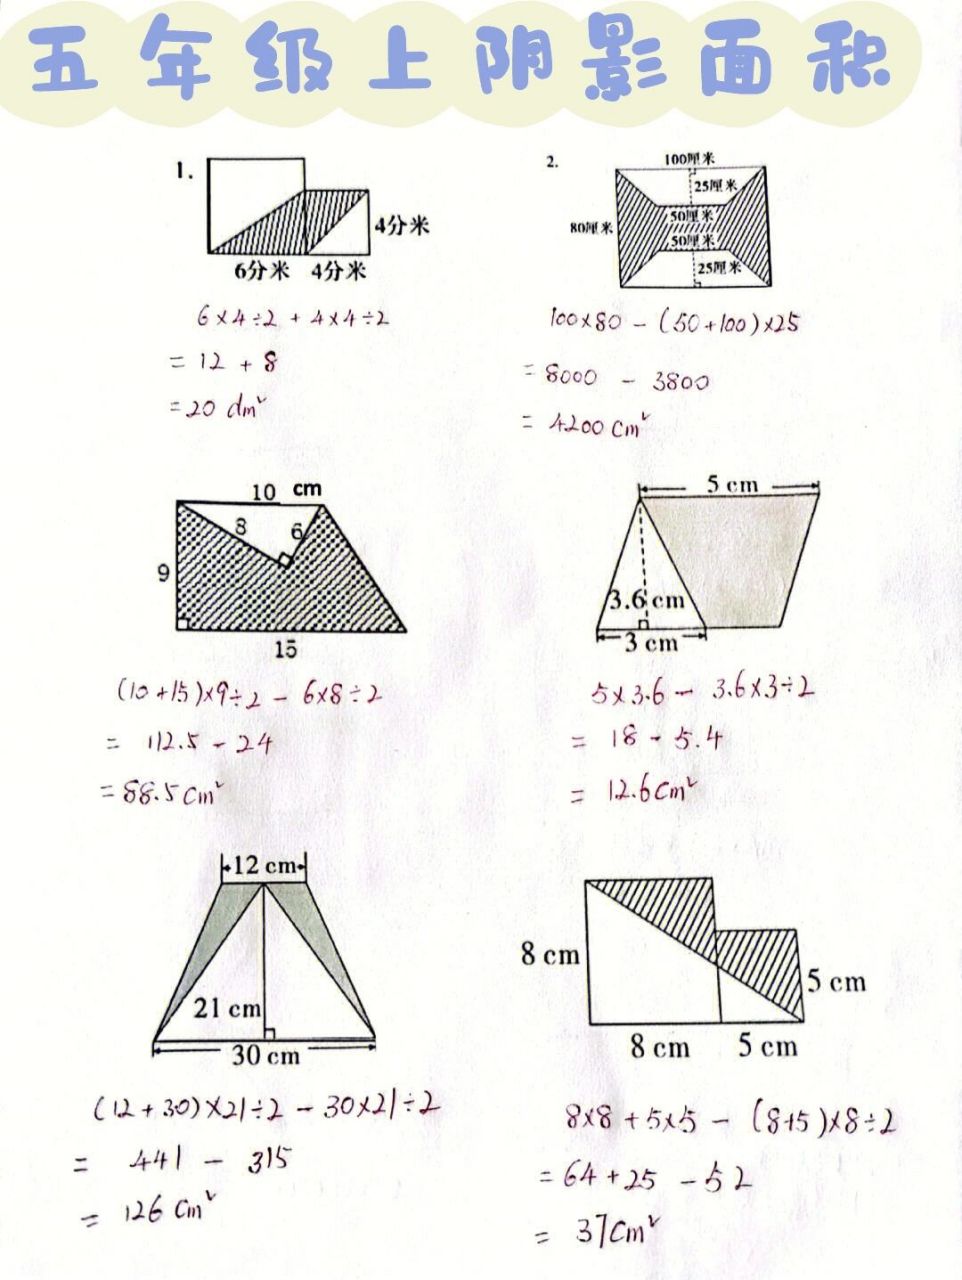 五年级上阴影面积
1.
4分米
6分米 4分米
6×4÷2 + 4×4÷2
= 12 + 8
=20 dm²
2.
100厘米
25厘米
80厘米
50厘米
50厘米
25厘米
100×80 - (50+100)×25
= 8000 - 3800
= 4200 cm²
10 cm
8 6
9
15
(10+15)×9÷2 - 6×8÷2
= 112.5 - 24
=88.5cm²
5 cm
3.6 cm
3 cm
5×3.6 - 3.6×3÷2
= 18 - 5.4
= 12.6cm²
12 cm
21 cm
30 cm
(12+30)×21÷2 - 30×21÷2
= 441 - 315
= 126 cm²
8 cm
5 cm
8 cm 5 cm
8×8+5×5 - (8+5)×8÷2
=64+25 -52
= 37cm²